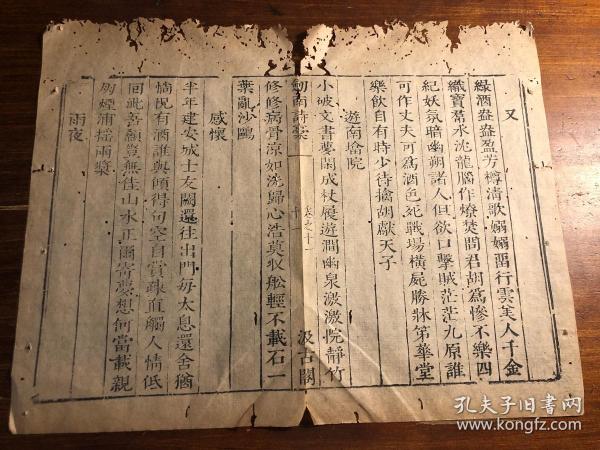 又
綠酒盎盎盈芳樽清歌嫋嫋畱行雲美人千金
織寶裙水沈龍腦作燎焚問君胡爲慘不樂四
紀妖氛暗幽朔諸人但欲口擊賊茫茫九原誰
可作丈夫可爲酒色死戰場橫屍勝牀笫華堂
樂飲自有時少待擒胡獻天子
遊南塔院
小破文書夢閑成杖屨遊澗幽泉激激院靜竹
劒南詩藁 卷之十一 十 汲古閣
修修病骨涼如洗歸心浩莫收船輕不載石一
葉亂沙鷗
感懷
半年建安城士友闕還往出門每太息還舍猶
惝怳有酒誰與傾得句空自賞疎直觸人情低
回 吾 豈無佳山水正爾寄夢想何當載親
朋煙浦搖兩槳
雨夜
孔夫子旧書网
www.kongfz.com